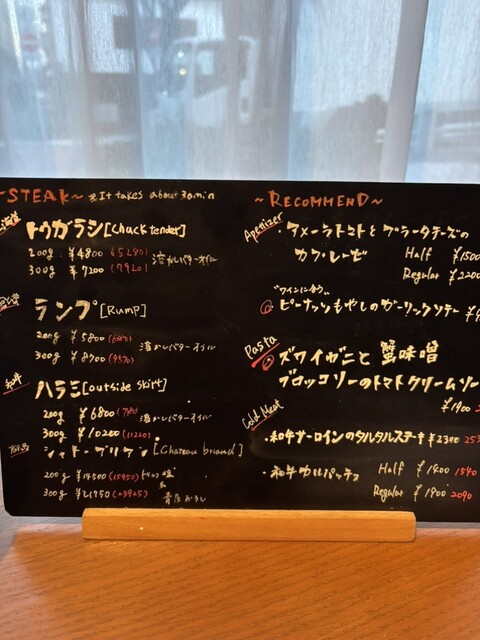 ~STEAK~ ※It takes about 30min
トウガラシ[Chuck tender]
200g ¥4800 (5280)
300g ¥7200 (7920)
溶かしバターオイル
ランプ[Rump]
200g ¥5800
300g ¥8700 (9570)
溶かしバターオイル
ハラミ[outside skirt]
200g ¥6800
300g ¥10200 (11220)
溶かしバターオイル
シャトーブリアン[Chateau briand]
200g ¥14500 (15950)
300g ¥21750 (23925)
~RECOMMEND~
Apetizer
アメーラトマトとブラータチーズの
カプレーゼ
Half ¥1500
Regular ¥2200
"ワインに合う"
ピーナッツもやしのガーリックソテー
Pasta
ズワイガニと蟹味噌
ブロッコリーのトマトクリームソー
¥1900
Cold Meat
・和牛サーロインのタルタルステーキ ¥2300
・和牛カルパッチョ
Half ¥1400 1540
Regular ¥1900 2090